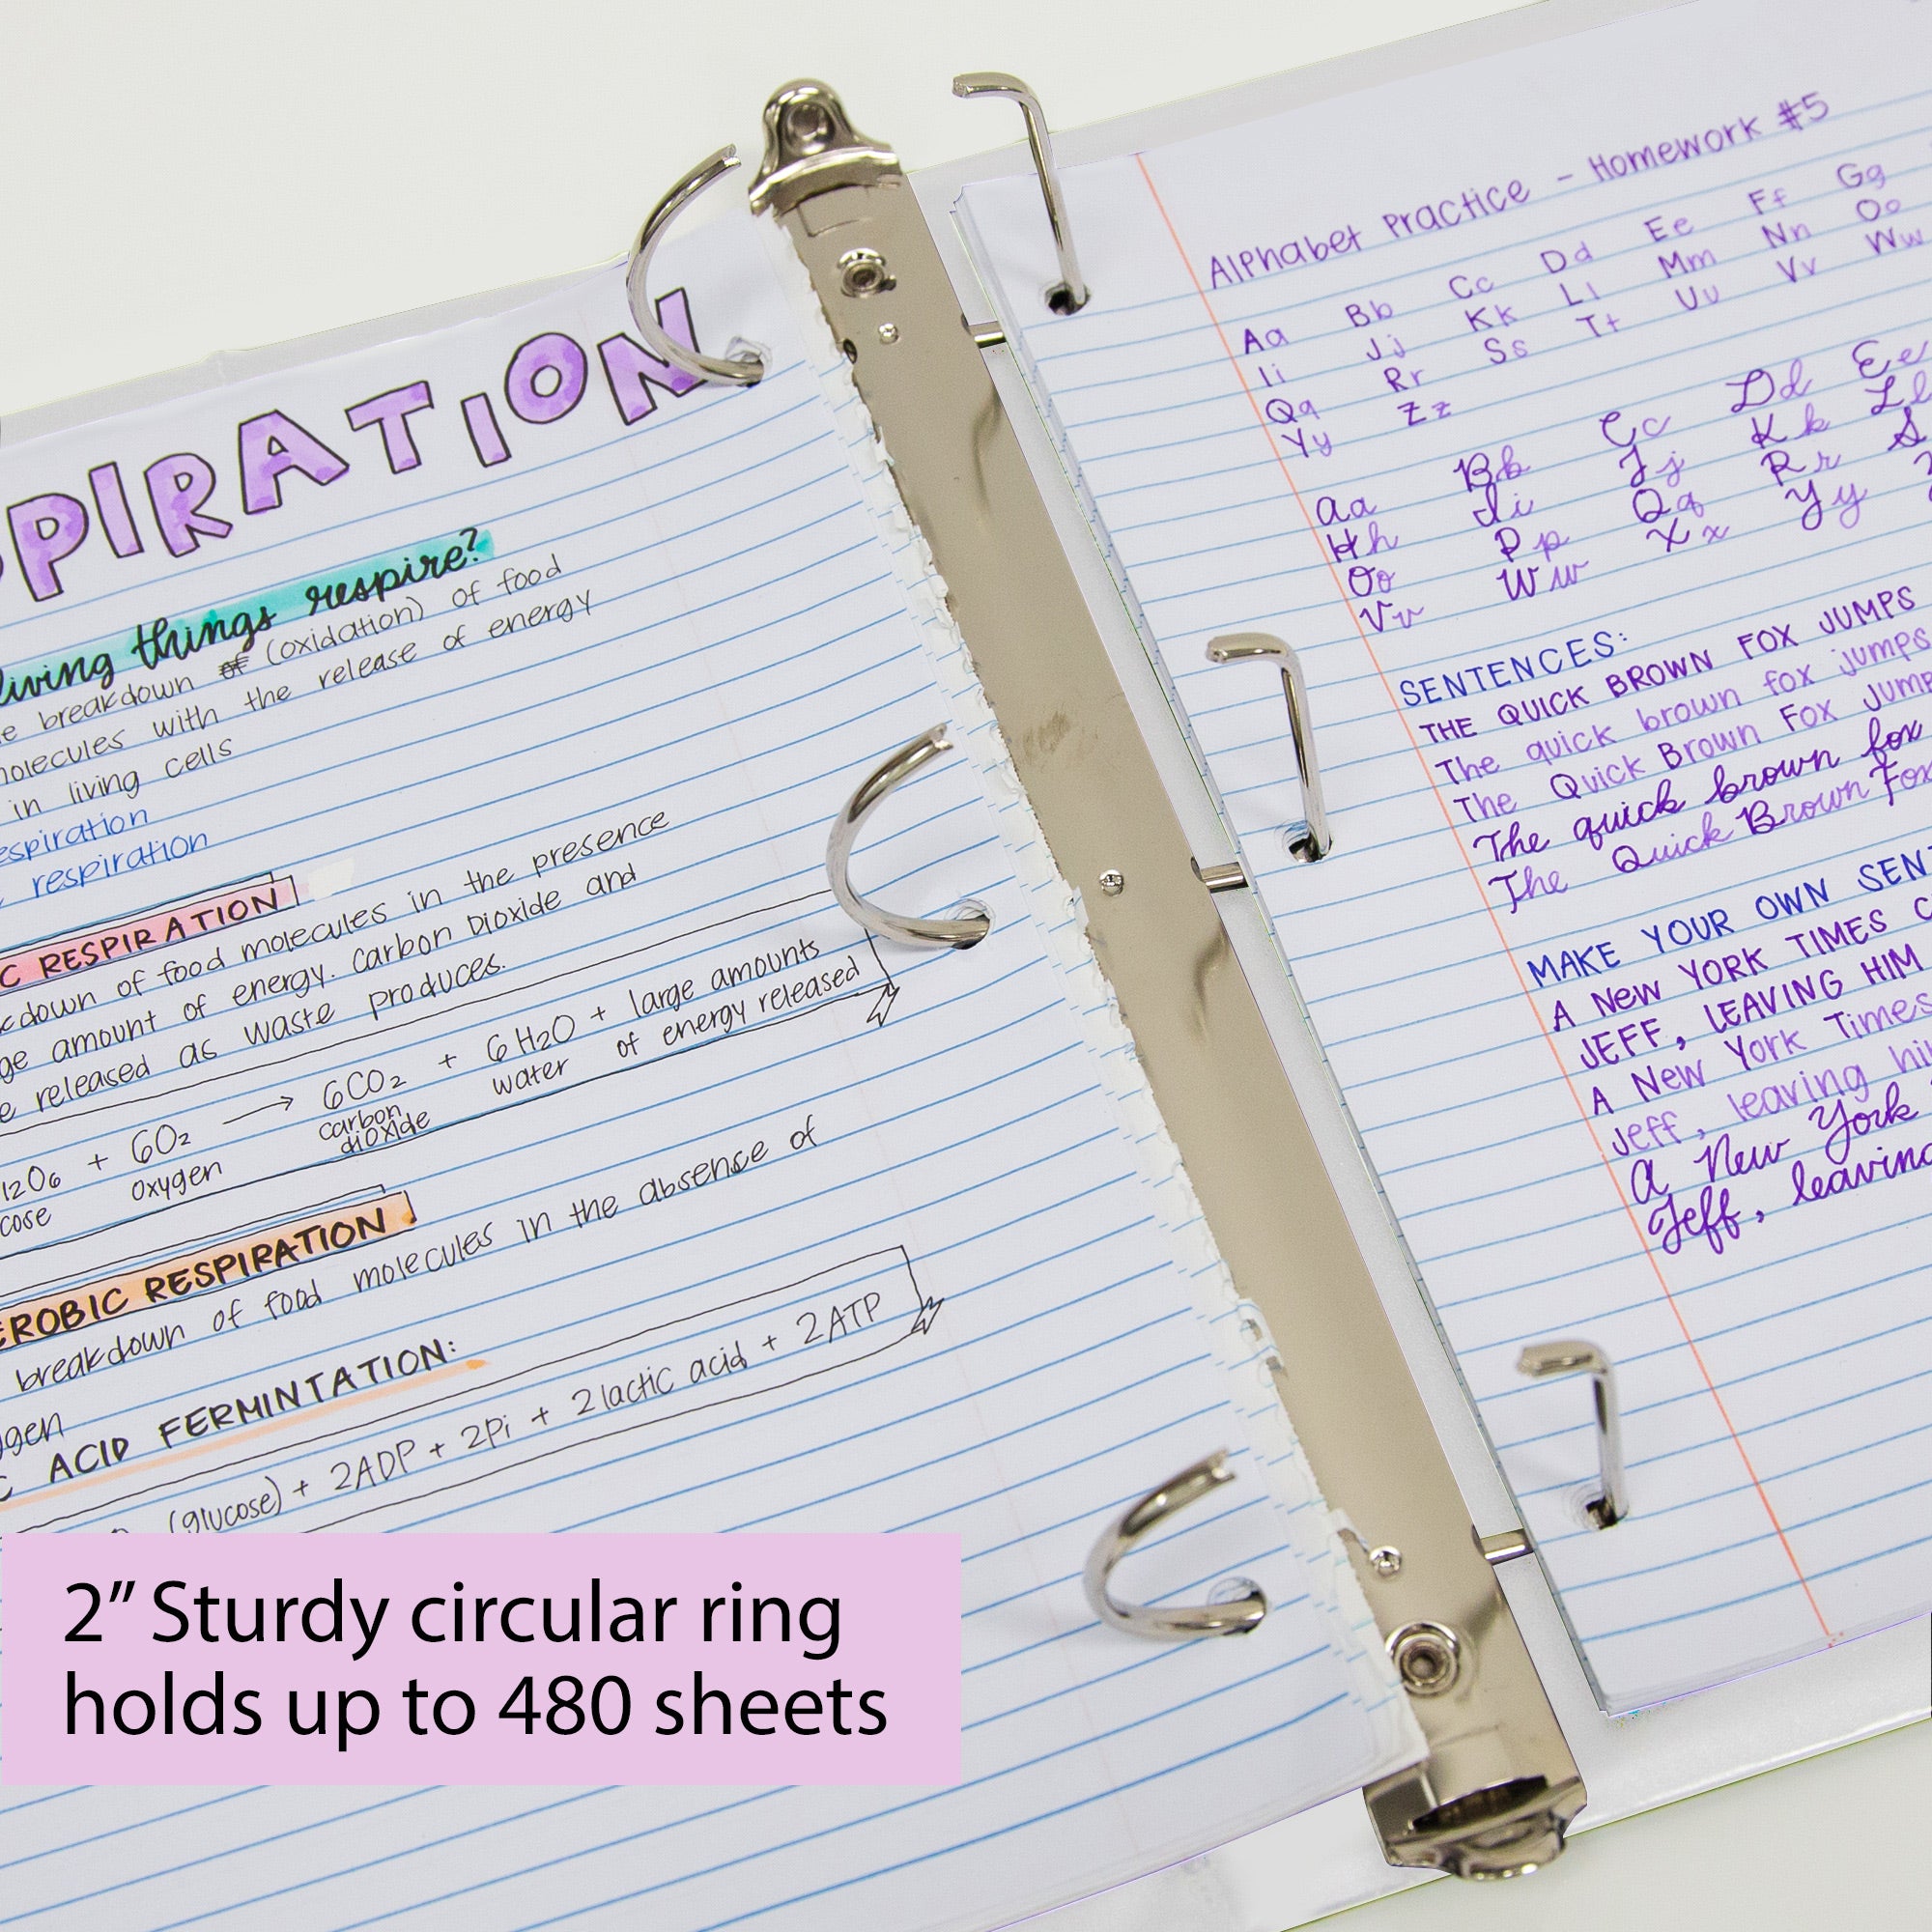 PIRATION
living things respire?
breakdown of (oxidation) of food
molecules with the release of energy
in living cells
respiration
respiration
C RESPIRATION
kdown of food molecules in the presence
ge amount of energy. Carbon Dioxide and
e released as waste produces.
12O6 + 6O2 → 6CO2 + 6H2O + large amounts
cose oxygen carbon dioxide water of energy released
EROBIC RESPIRATION
breakdown of food molecules in the absence of
ygen
C ACID FERMINTATION:
(glucose) + 2ADP + 2Pi + 2 lactic acid + 2ATP
2” Sturdy circular ring
holds up to 480 sheets
Alphabet Practice - Homework #5
Aa Bb Cc Dd Ee Ff Gg
Ii Jj Kk Ll Mm Nn Oo
Qq Rr Ss Tt Uu Vv Ww
Yy Zz
Aa Bb Cc Dd Ee
Hh Ii Jj Kk Ll
Oo Pp Qq Rr S
Vv Ww Xx Yy
SENTENCES:
THE QUICK BROWN FOX JUMPS
The quick brown fox jumps
The Quick Brown Fox Jump
The quick brown fox
The Quick Brown Fox
MAKE YOUR OWN SENT
A NEW YORK TIMES C
JEFF, LEAVING HIM
A New York Times
Jeff, leaving hi
A New York
Jeff, leaving